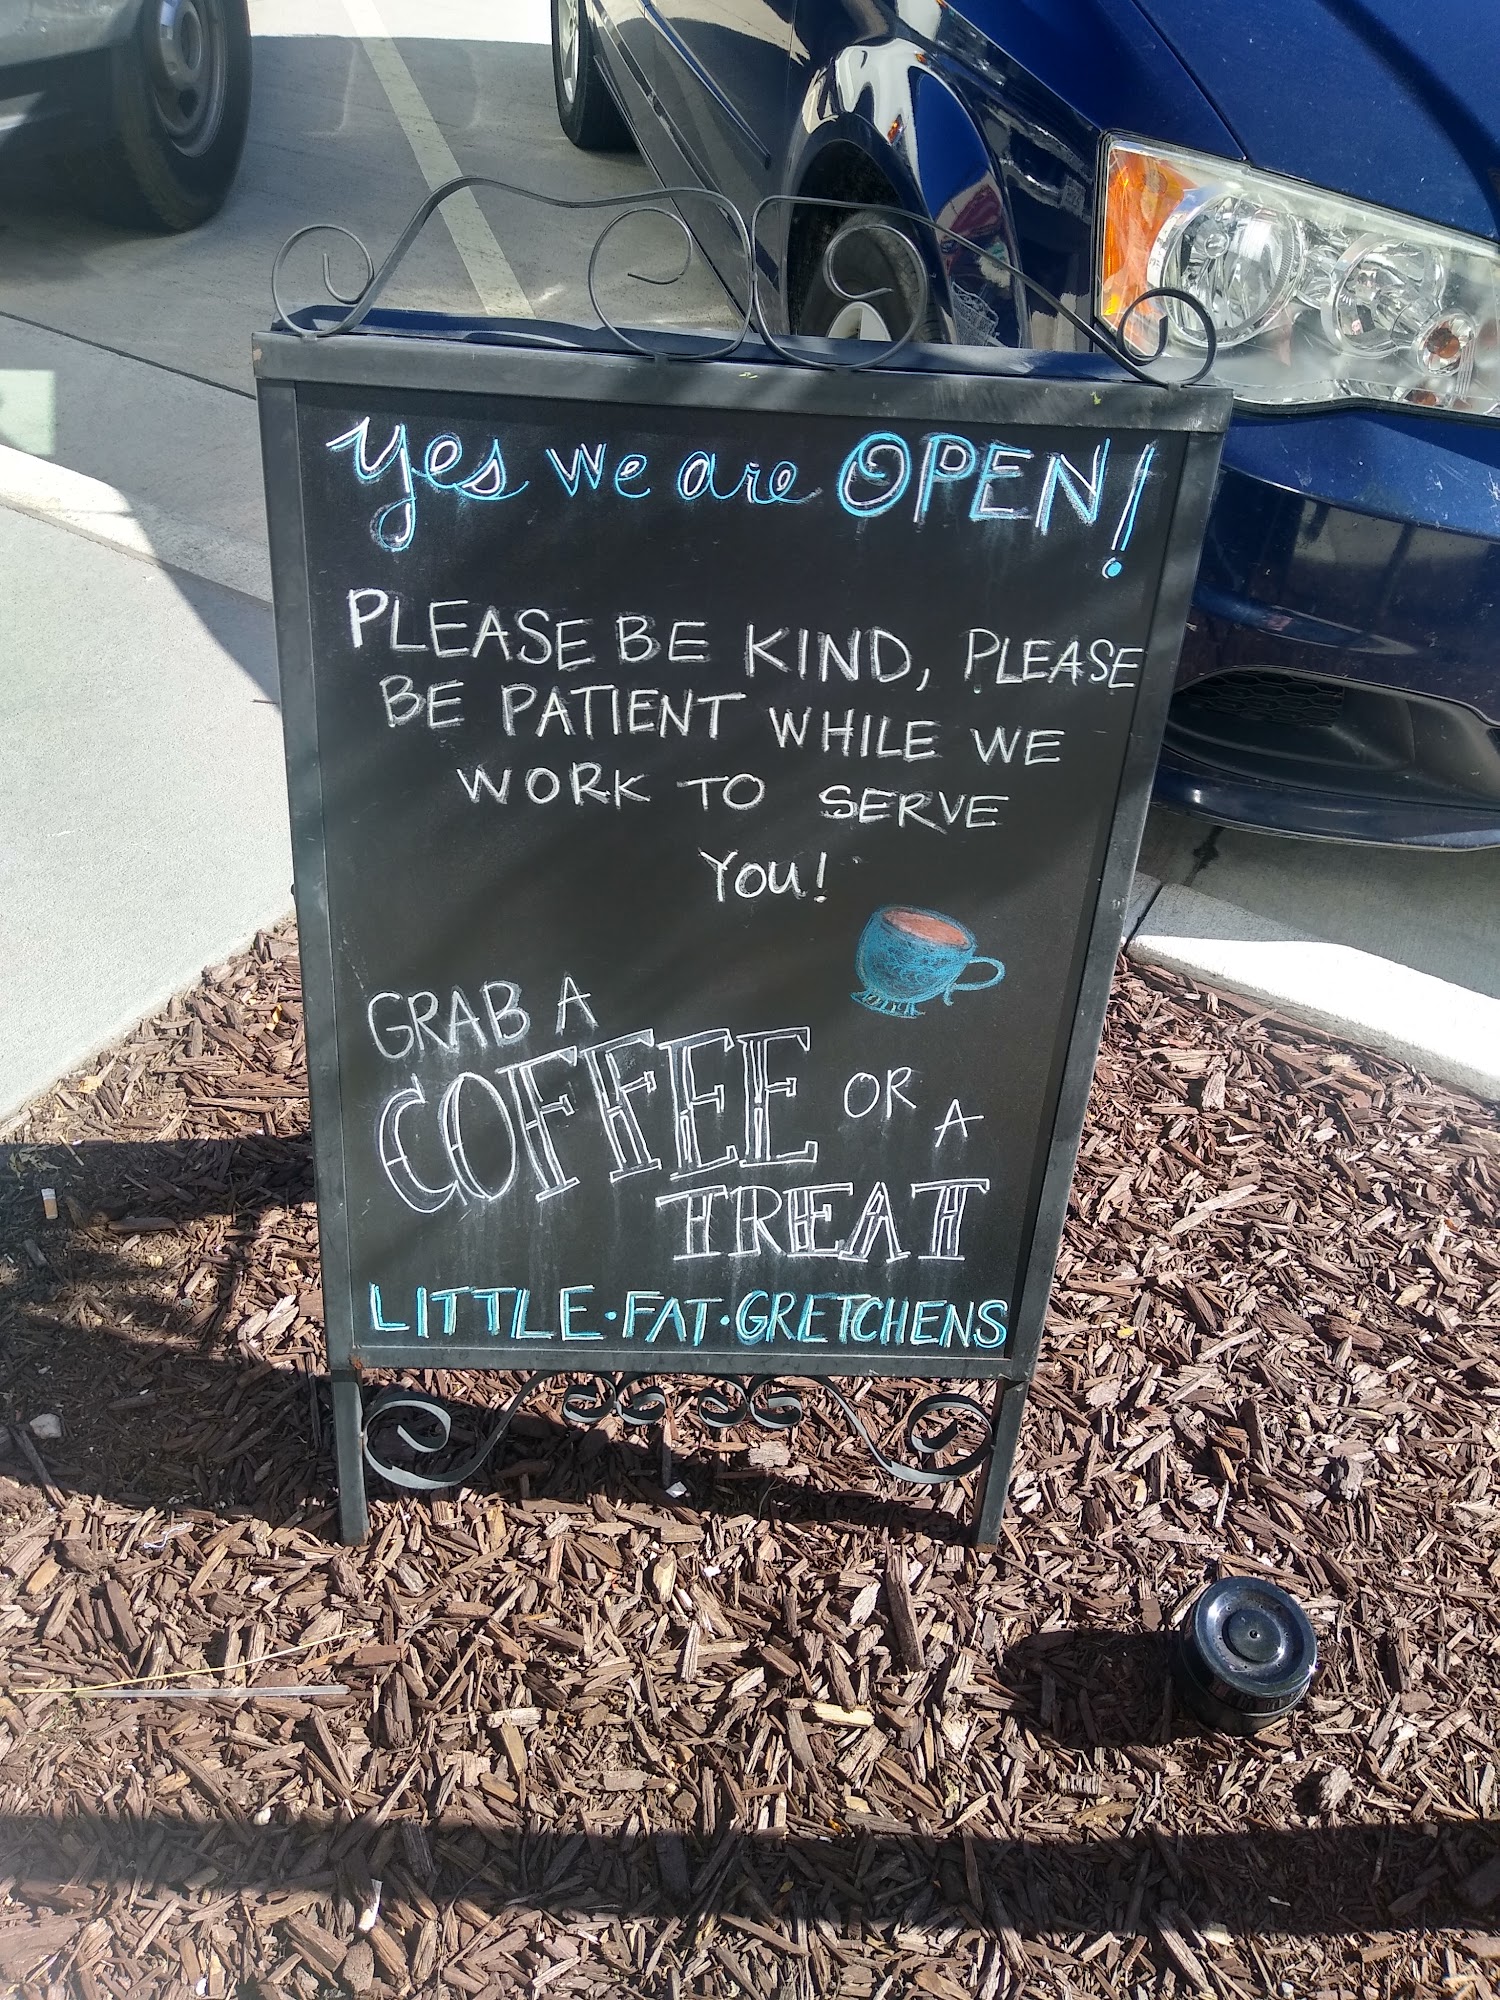 yes we are OPEN!
PLEASE BE KIND, PLEASE
BE PATIENT WHILE WE
WORK TO SERVE
YOU!
GRAB A
COFFEE OR A
TREAT
LITTLE·FAT·GRETCHENS